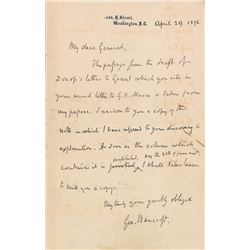 H Street,
Washington, D.C.
April 29, 1876
My dear General,
The passage from the draft of
Donop's letter to Grant which you cite in
your second letter to G. H. Moore is taken from
my papers. I enclose to you a copy of the
note in which I have referred to your discovery &
explanation. As soon as the volume which
published,
contains it is printed, I shall take leave
to send you a copy.
very truly yours greatly obliged
Geo. Bancroft.